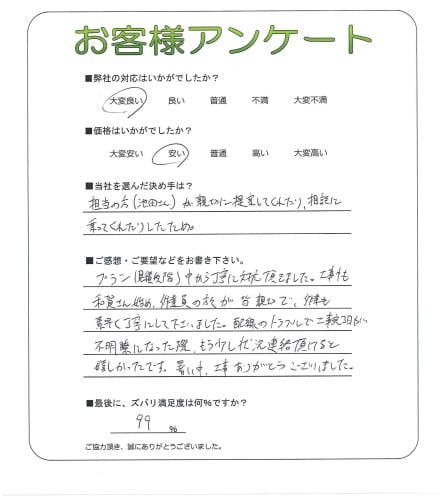 お客様アンケート
■弊社の対応はいかがでしたか？
大変良い 良い 普通 不満 大変不満
■価格はいかがでしたか？
大変安い 安い 普通 高い 大変高い
■当社を選んだ決め手は？
担当の方(池田さん)が親切に提案してくれたり、相談に
乗ってくれたりしたため。
■ご感想・ご要望などをお書き下さい。
プラン(見積段階)中から丁寧に対応頂きました。工事も
和賀さん始め、作業員の方が皆親切で、作業も
素早く丁寧にして下さいました。配線のトラブルで工事日が
不明瞭になった際、もう少し状況連絡頂けると
嬉しかったです。暑い中、工事ありがとうございました。
■最後に、ズバリ満足度は何%ですか？
99 %
ご協力頂き、誠にありがとうございました。